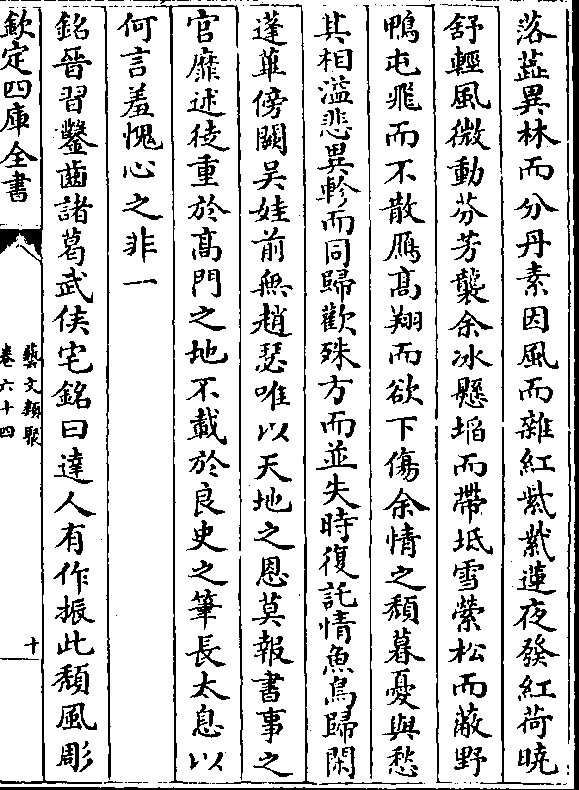 落蘂異林而分丹素因風而雜紅紫紫蓮夜發紅荷曉
舒輕風微動芬芳襲余冰懸埳而帶坻雪縈松而蔽野
鴨屯飛而不散鴈高翔而欲下傷余情之頽暮憂與愁
其相溢悲異軫而同歸歡殊方而並失時復託情魚鳥歸閑
蓬蓽傍闕吳娃前無趙瑟唯以天地之恩莫報書事之
官靡述徒重於高門之地不載於良史之筆長太息以
何言羞愧心之非一
銘晉習鑿齒諸葛武侯宅銘曰達人有作振此頽風彫
欽定四庫全書
藝文類聚
卷六十四
十